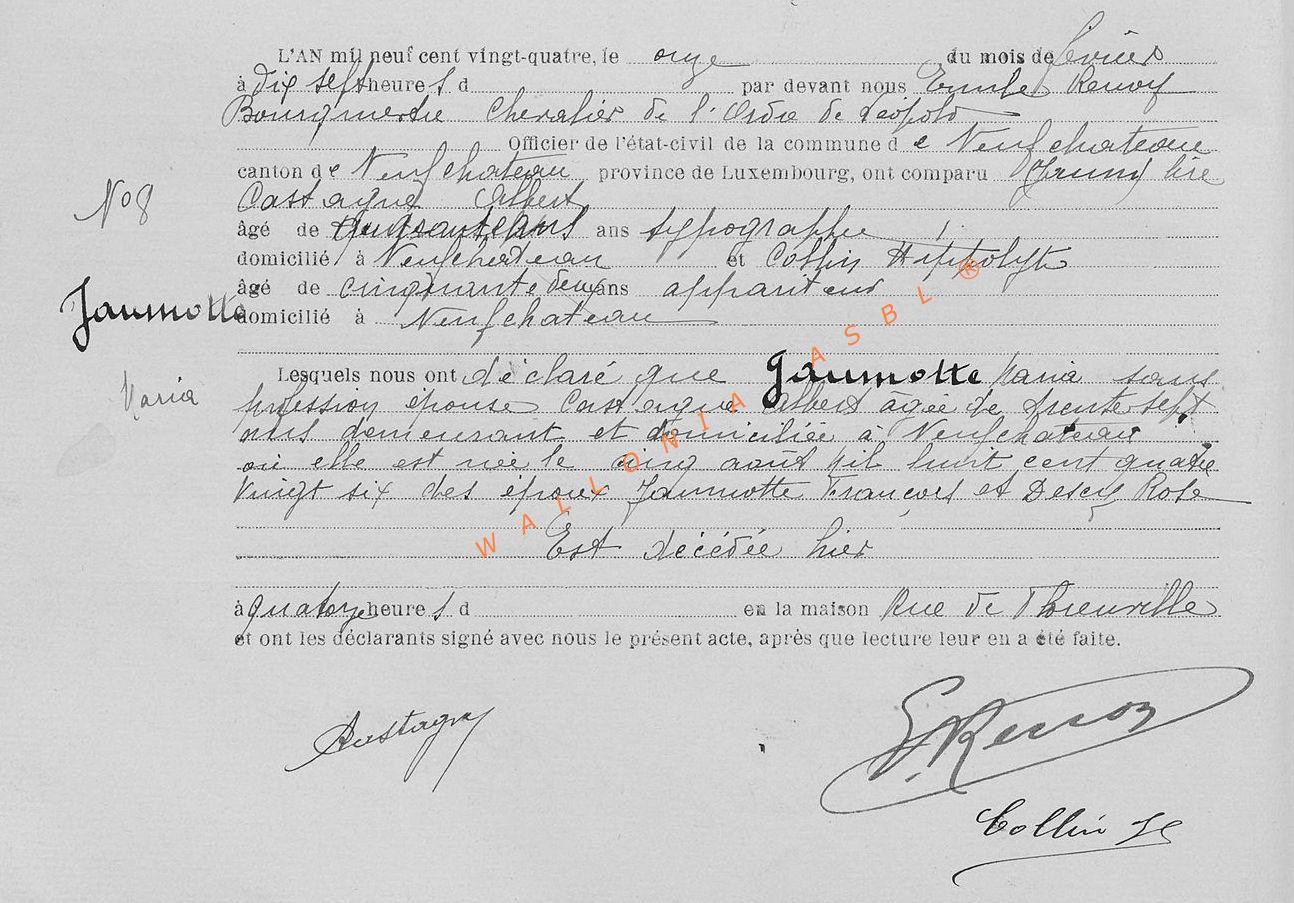 L'AN mil neuf cent vingt-quatre, le onze du mois de février
à dix sept heures d par devant nous Emile
Bourgmestre Chevalier de l'Ordre de Léopold
Officier de l'état-civil de la commune de Neufchateau
canton de Neufchateau province de Luxembourg, ont comparu
No 8
Castagne Albert
âgé de ans typographe
domicilié à Neufchateau et Collin Hippolyte
âgé de cinquante deux ans appariteur
Jaumotte
domicilié à Neufchateau
Lesquels nous ont déclaré que Jaumotte Maria sans
Maria
profession épouse Castagne Albert âgée de trente sept
ans demeurant et domiciliée à Neufchateau
où elle est née le cinq août mil huit cent quatre
vingt six des époux Jaumotte François et Rose
Est décédée hier
à quatorze heures d en la maison Rue de
et ont les déclarants signé avec nous le présent acte, après que lecture leur en a été faite.
ACastagne
Collin H
WALLONIA ASBL ®